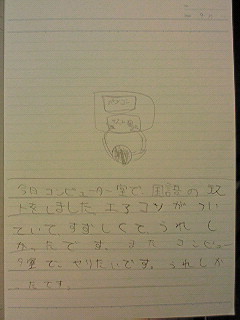 今日コンピューター室で国語のテス
トをしました。エアコンがつい
ていてすずしくてうれし
かったです。また コンピュー
ター室で、やりたいです。うれしか
ったです。